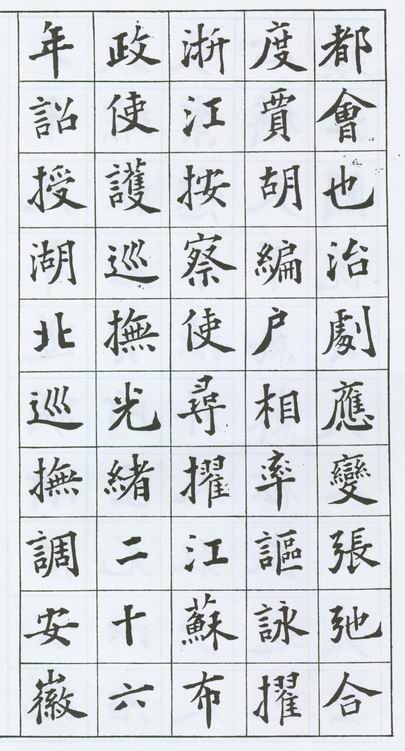 都會也治劇應變張弛合
度賈胡編户相率謳詠擢
浙江按察使尋擢江蘇布
政使護巡撫光緒二十六
年詔授湖北巡撫調安徽